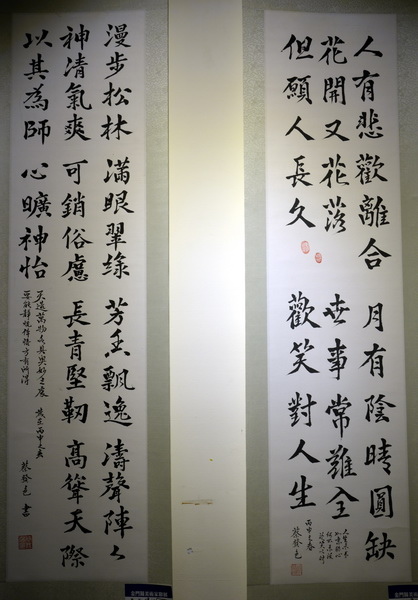 人有悲歡離合 月有陰晴圓缺
花開又花落 世事常難全
但願人長久 歡笑對人生
丙申之春
蔡發色
漫步松林 滿眼翠綠 芳香飄逸 濤聲陣々
神清氣爽 可銷俗慮 長青堅韌 高聳天際
以其為師 心曠神怡
天造萬物各具
蔡發色 書